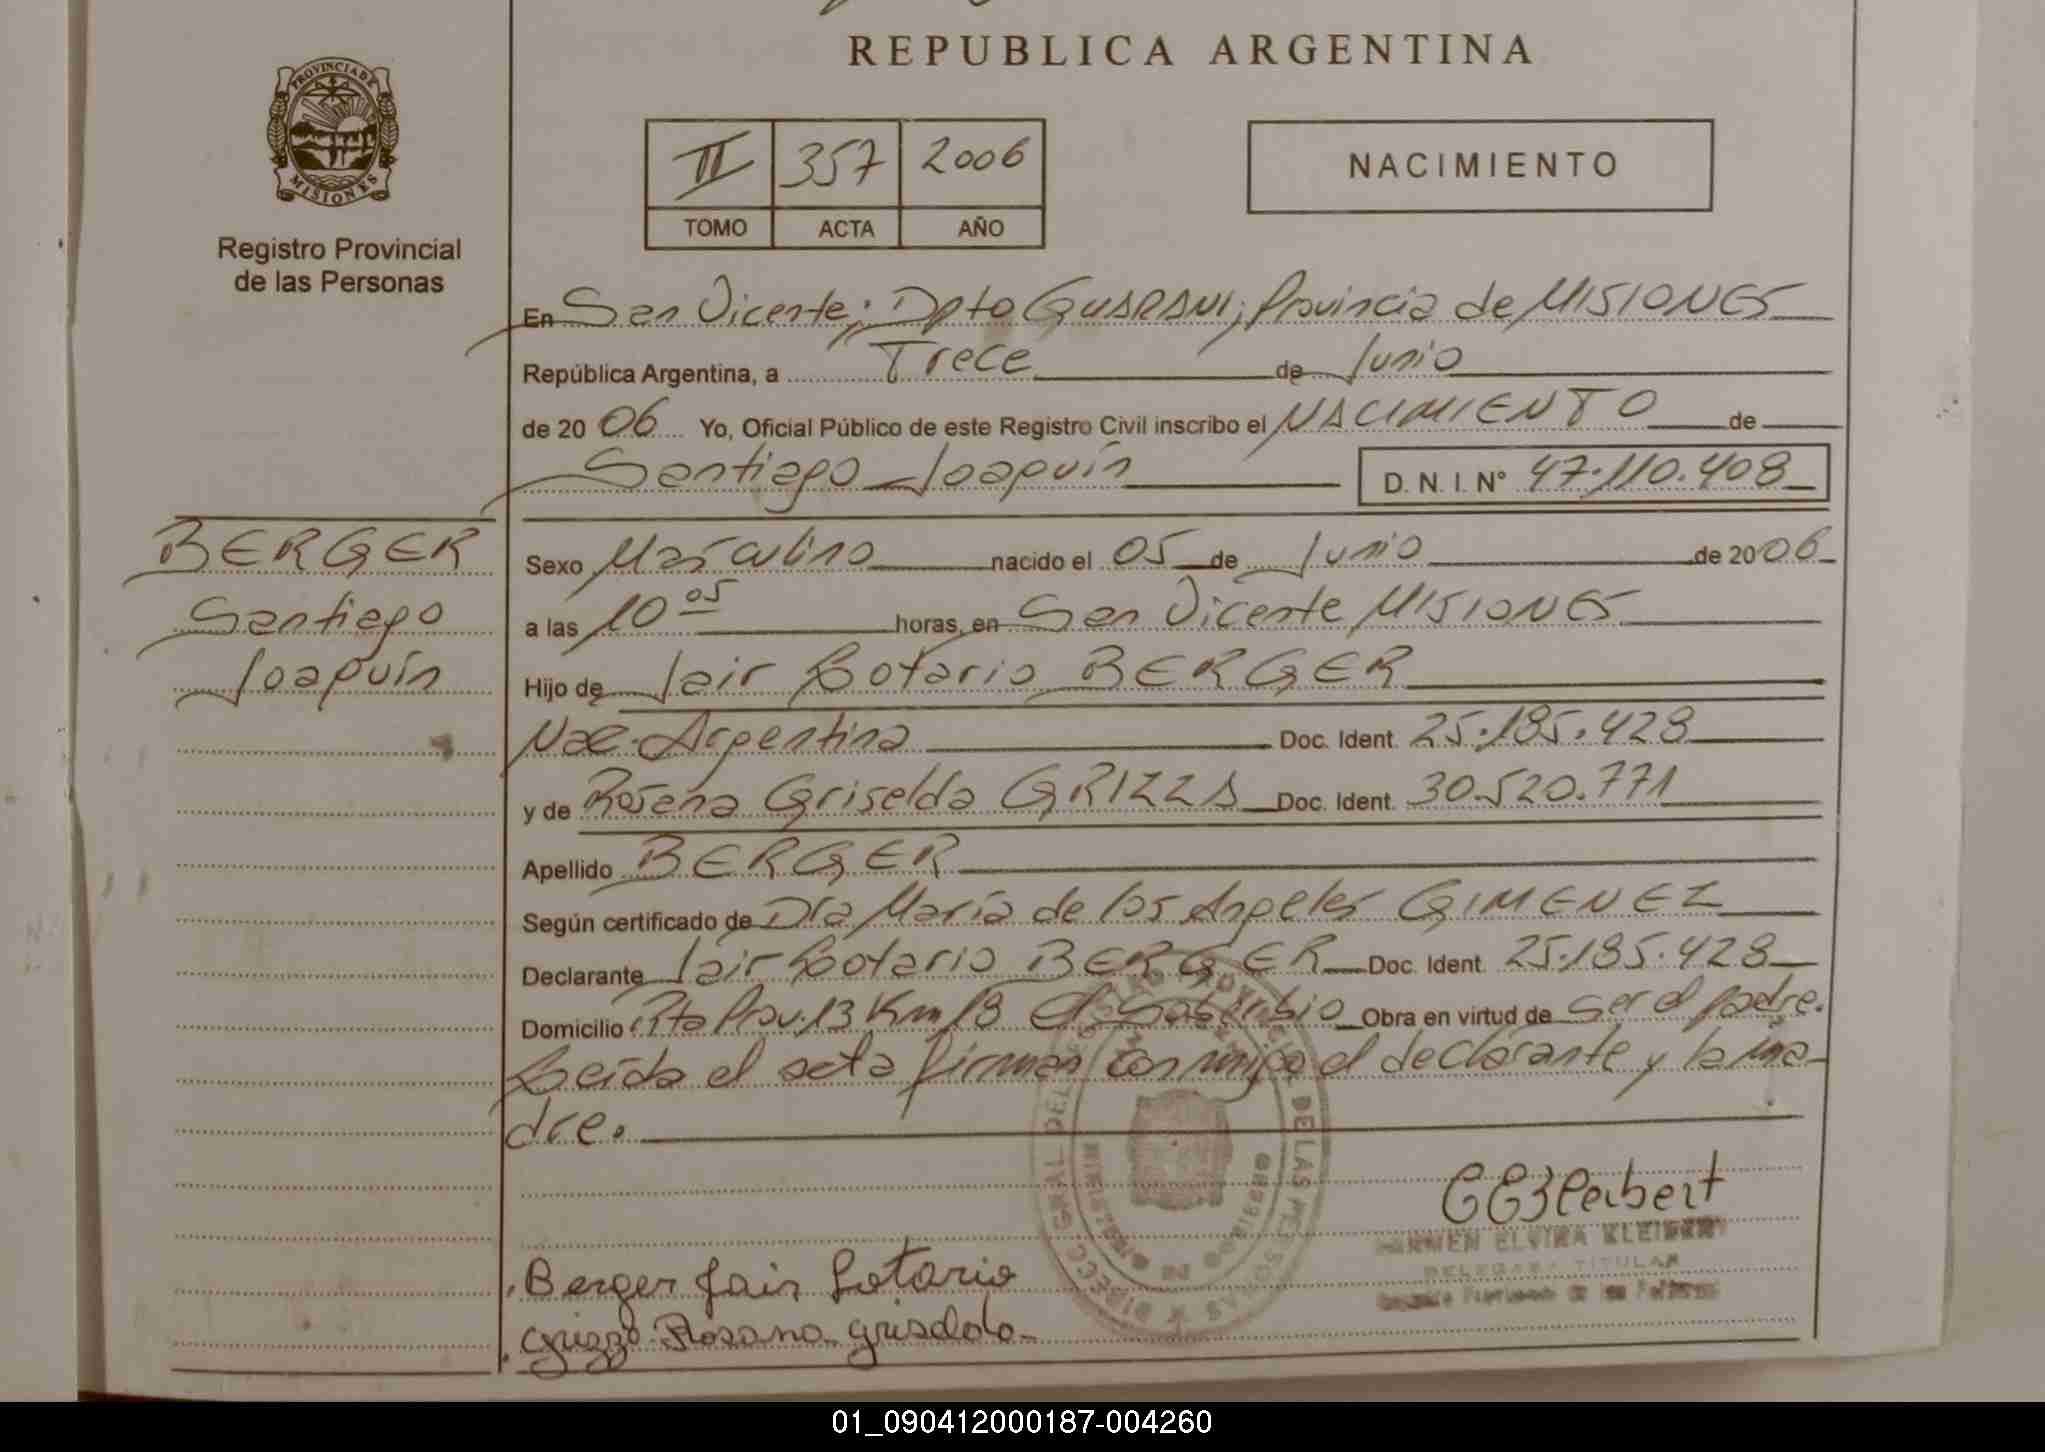 REPUBLICA ARGENTINA
PROVINCIA DE MISIONES
Registro Provincial
de las Personas
II 357 2006
TOMO ACTA AÑO
NACIMIENTO
En San Vicente; Dpto GUARANI; Provincia de MISIONES
República Argentina, a Trece de Junio
de 2006 Yo, Oficial Público de este Registro Civil inscribo el NACIMIENTO de
Santiago Joaquín D. N. I. Nº 47.110.408
BERGER
Santiago
Joaquín
Sexo Masculino nacido el 05 de Junio de 2006
a las 10 05 horas, en San Vicente MISIONES
Hijo de Jair Lotario BERGER
Nac. Argentina Doc. Ident. 25.185.428
y de Rosana Griselda GRIZZA Doc. Ident. 30.520.771
Apellido BERGER
Según certificado de Dra María de los Angeles GIMENEZ
Declarante Jair Lotario BERGER Doc. Ident. 25.185.428
Domicilio Rta Prov. 13 Km 18 El Soberbio Obra en virtud de ser el padre.
Leída el acta firman conmigo el declarante y la ma-
dre.
CEKleibert
CARMEN ELVIRA KLEIBERT
DELEGADA TITULAR
Berger Jair Lotario
Grizza Rosana Griselda
01_090412000187-004260